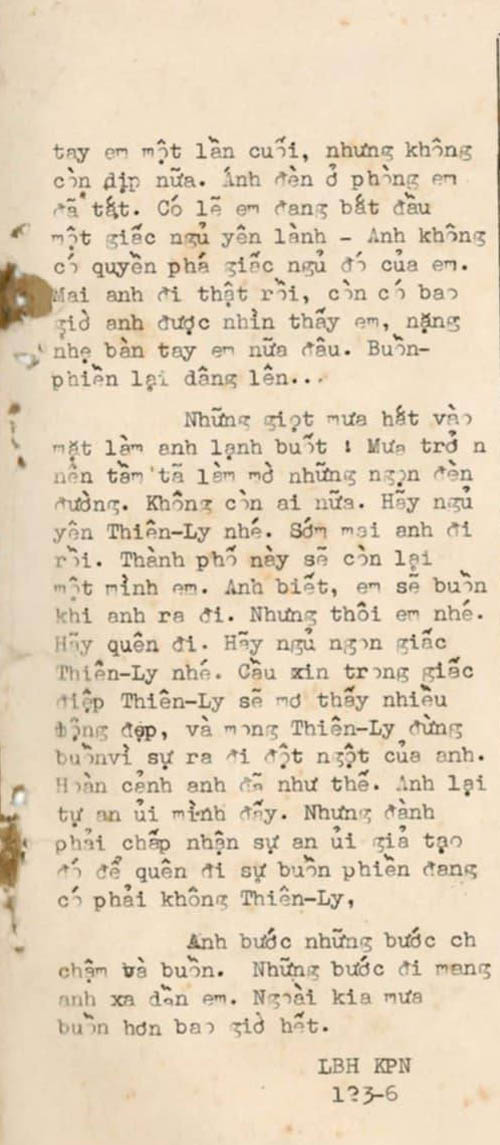 tay em một lần cuối, nhưng không
còn dịp nữa. Ánh đèn ở phòng em
đã tắt. Có lẽ em đang bắt đầu
một giấc ngủ yên lành - Anh không
có quyền phá giấc ngủ đó của em.
Mai anh đi thật rồi, còn có bao
giờ anh được nhìn thấy em, nặng
nhẹ bàn tay em nữa đâu. Buồn-
phiền lại dâng lên...
Những giọt mưa hắt vào
mặt làm anh lạnh buốt ! Mưa trở n
nên tầm tã làm mờ những ngọn đèn
đường. Không còn ai nữa. Hãy ngủ
yên Thiên-Ly nhé. Sớm mai anh đi
rồi. Thành phố này sẽ còn lại
một mình em. Anh biết, em sẽ buồn
khi anh ra đi. Nhưng thôi em nhé.
Hãy quên đi. Hãy ngủ ngon giấc
Thiên-Ly nhé. Cầu xin trong giấc
điệp Thiên-Ly sẽ mơ thấy nhiều
mộng đẹp, và mong Thiên-Ly đừng
buồnvì sự ra đi đột ngột của anh.
Hoàn cảnh anh đã như thế. Anh lại
tự an ủi mình đấy. Nhưng đành
phải chấp nhận sự an ủi giả tạo
đó để quên đi sự buồn phiền đang
có phải không Thiên-Ly,
Anh bước những bước ch
chậm và buồn. Những bước đi mang
anh xa dần em. Ngoài kia mưa
buồn hơn bao giờ hết.
LBH KPN
1?3-6